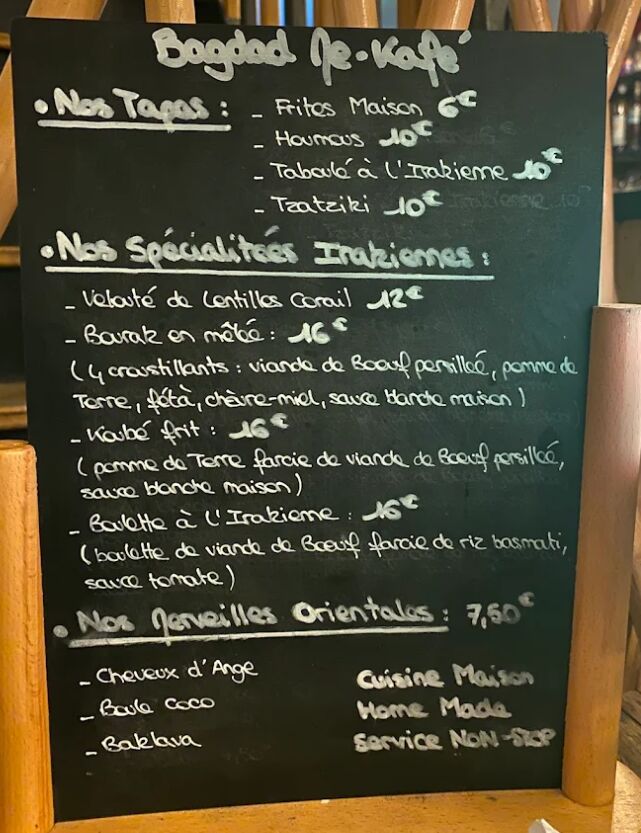 Bagdad Ne-Kafé
• Nos Tapas : - Frites Maison 6€
- Houmous 10€
- Taboulé à L'Irakienne 10€
- Tzatziki 10€
• Nos Spécialitées Irakiennes :
- Velouté de Lentilles Corail 12€
- Bourak en mêlé : 16€
( 4 croustillants : viande de Boeuf persillée, pomme de
Terre, fétà, chèvre-miel, sauce blanche maison )
- Koubé frit : 16€
( pomme de Terre farcie de viande de Boeuf persillée,
sauce blanche maison )
- Boulette à L'Irakienne : 16€
( boulette de viande de Boeuf farcie de riz basmati,
sauce tomate )
• Nos Merveilles Orientales : 7,50€
- Cheveux d'Ange
- Boule Coco
- Baklava
Cuisine Maison
Home Made
Service NON-STOP